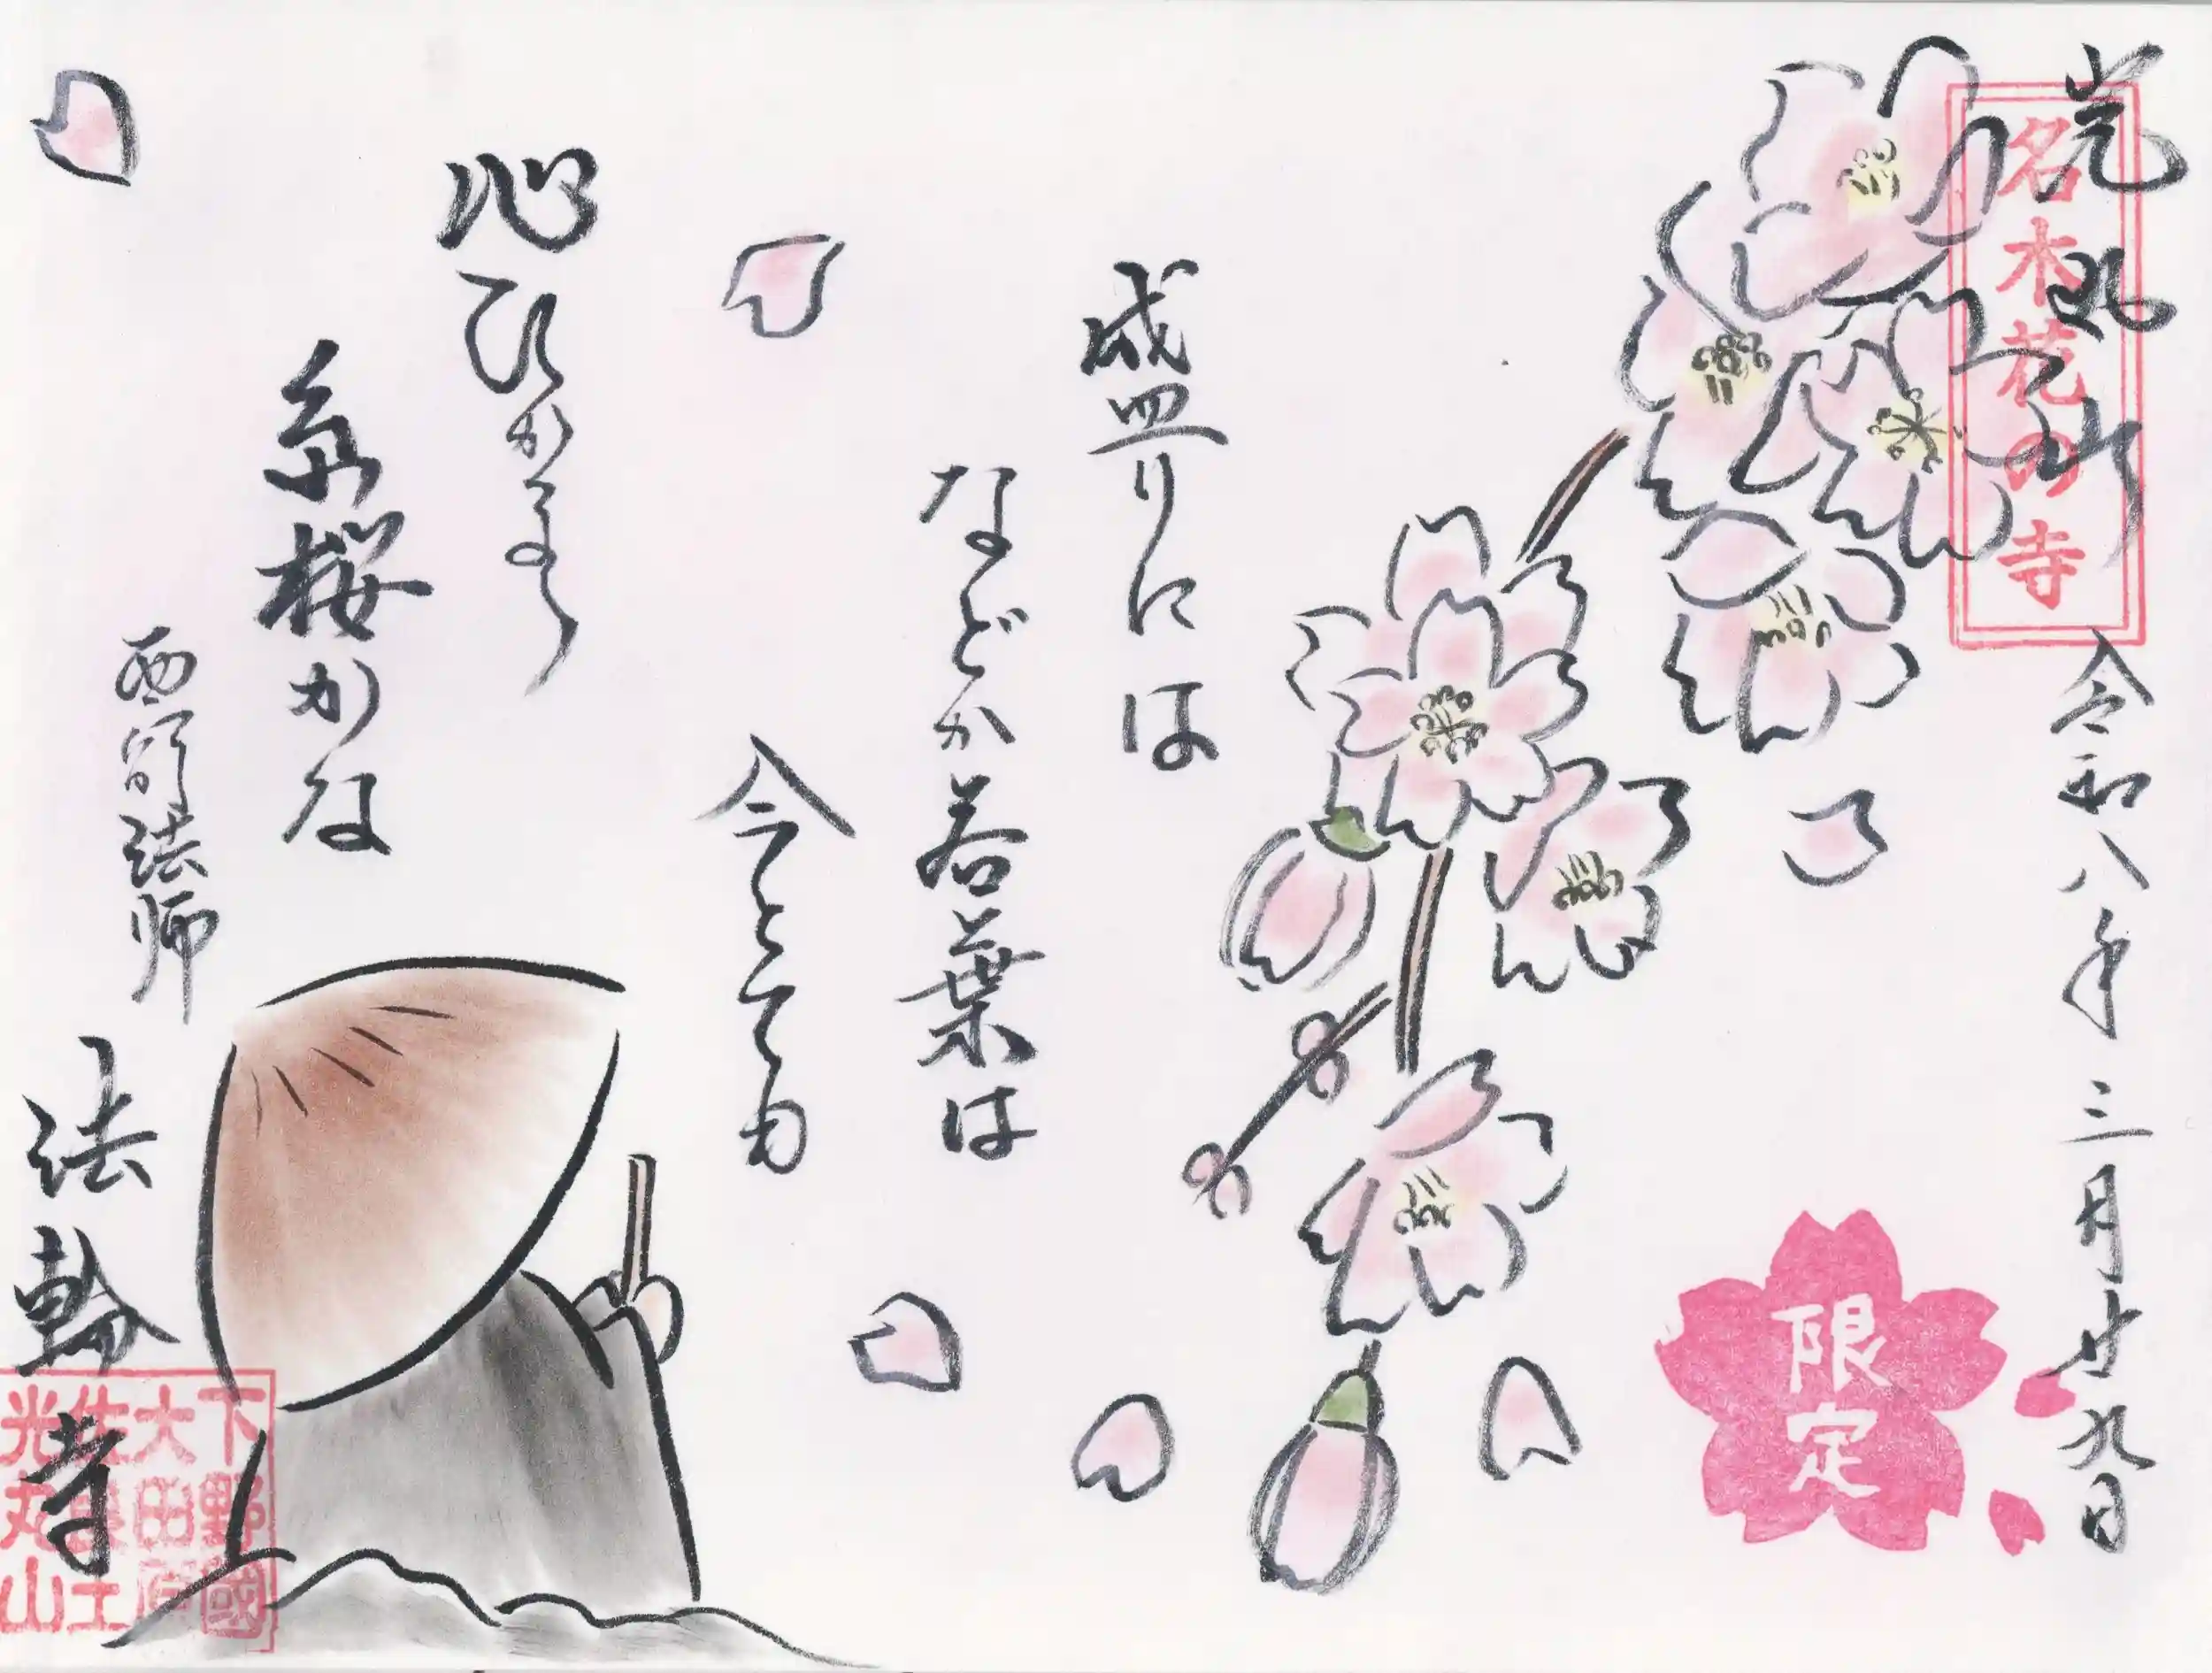 光丸山
名木花の寺
令和八年三月廿九日
限定
盛りには
などか若葉は
今とても
心ひかるゝ
糸桜かな
西行法師
法輪寺
下野國
大田原
佐良土
光丸山